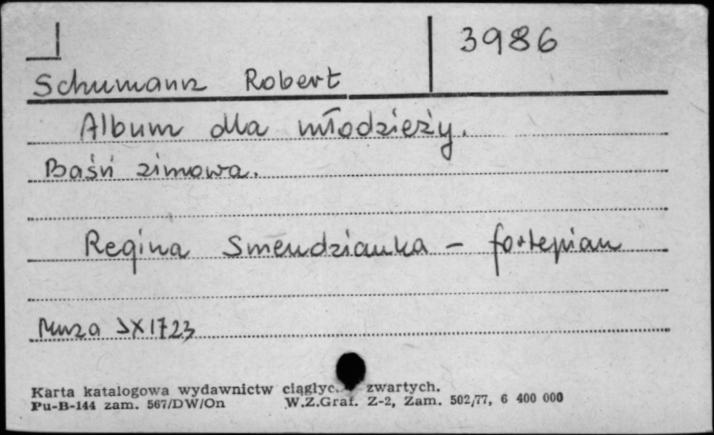 3986
Schumann Robert
Album dla młodzieży.
Baśń zimowa.
Regina Smendzianka – fortepian
Muza SX 1723
Karta katalogowa wydawnictw ciągłyc. zwartych.
Pu-B-144 zam. 567/DW/On W.Z.Graf. Z-2, Zam. 502/77, 6 400 000